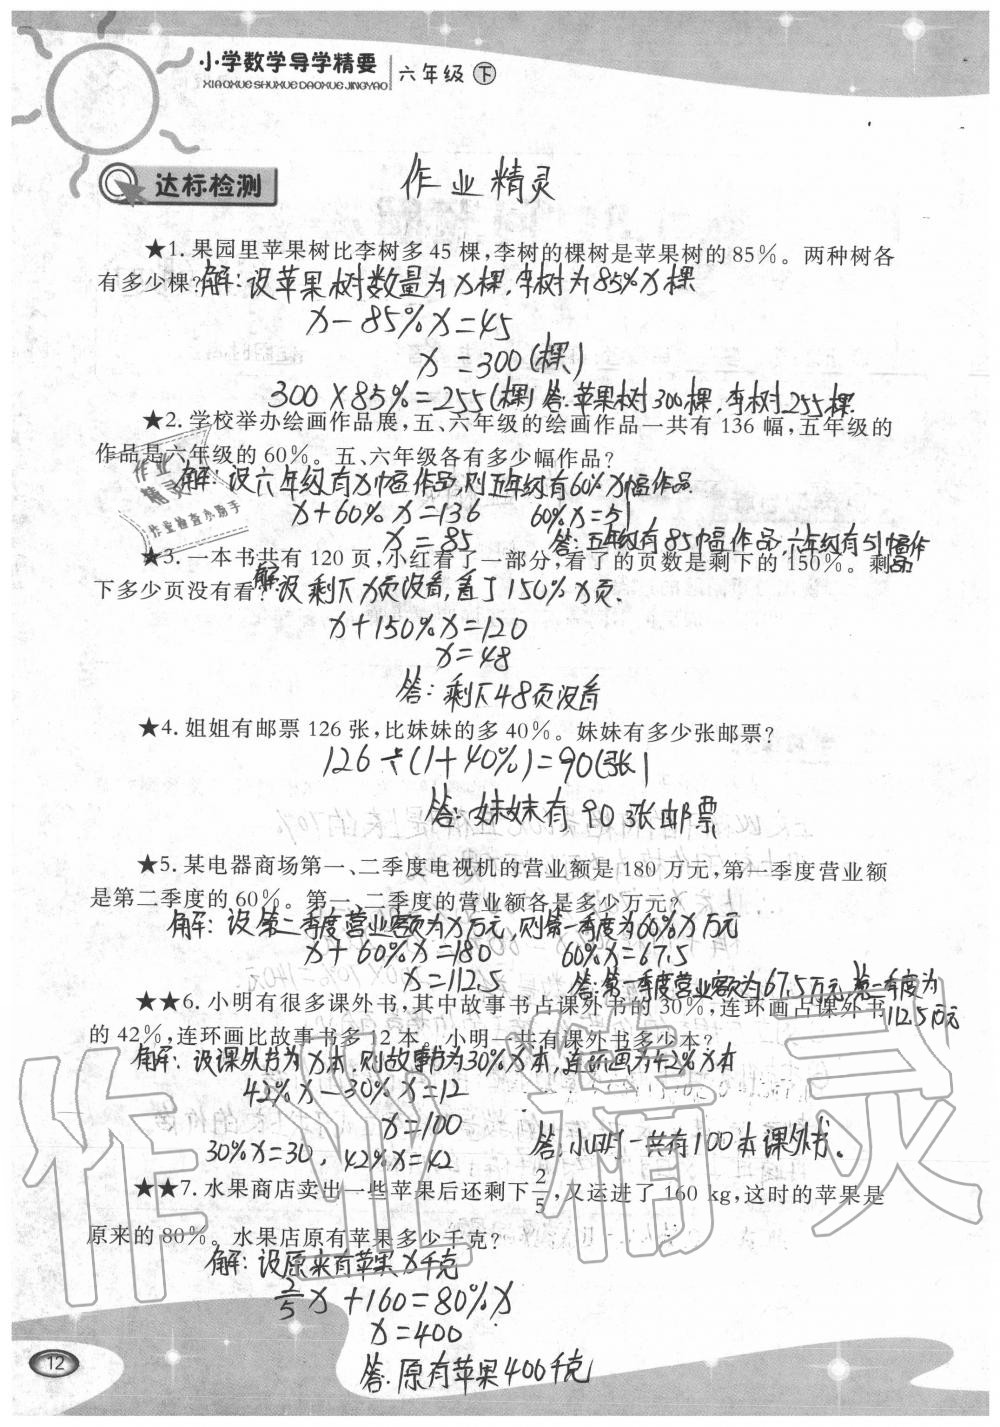 小学数学导学精要
XIAOXUESHUXUEDAOXUEJINGYAO
六年级 下
达标检测
作业精灵
★1. 果园里苹果树比李树多 45 棵,李树的棵树是苹果树的 85%。两种树各
有多少棵? 解:设苹果树数量为x棵,李树为85%x棵
x-85%x=45
x=300(棵)
300×85%=255(棵) 答:苹果树300棵,李树255棵.
★2. 学校举办绘画作品展,五、六年级的绘画作品一共有 136 幅,五年级的
作品是六年级的 60%。五、六年级各有多少幅作品?
解:设六年级有x幅作品,则五年级有60%x幅作品
x+60%x=136 60%x=51
x=85 答:五年级有85幅作品,六年级有51幅作品
作业精灵
作业检查小助手
★3. 一本书共有 120 页,小红看了一部分,看了的页数是剩下的 150%。剩
下多少页没有看? 解:设剩下x页没看,看了150%x页.
x+150%x=120
x=48
答:剩下48页没看
★4. 姐姐有邮票 126 张,比妹妹的多 40%。妹妹有多少张邮票?
126÷(1+40%)=90(张)
答:妹妹有90张邮票
★5. 某电器商场第一、二季度电视机的营业额是 180 万元,第一季度营业额
是第二季度的 60%。第一、二季度的营业额各是多少万元?
解:设第二季度营业额为x万元,则第一季度为60%x万元
x+60%x=180 60%x=67.5
x=112.5 答:第一季度营业额为67.5万元,第二季度为112.5万元
★★6. 小明有很多课外书,其中故事书占课外书的 30%,连环画占课外书
的 42%,连环画比故事书多 12 本。小明一共有课外书多少本?
解:设课外书为x本,则故事书为30%x本,连环画为42%x本
42%x-30%x=12
x=100
30%x=30, 42%x=42 答:小明一共有100本课外书。
★★7. 水果商店卖出一些苹果后还剩下2/5,又运进了 160 kg,这时的苹果是
原来的 80%。水果店原有苹果多少千克?
解:设原来有苹果x千克
2/5x+160=80%x
x=400
答:原有苹果400千克
12
作业精灵